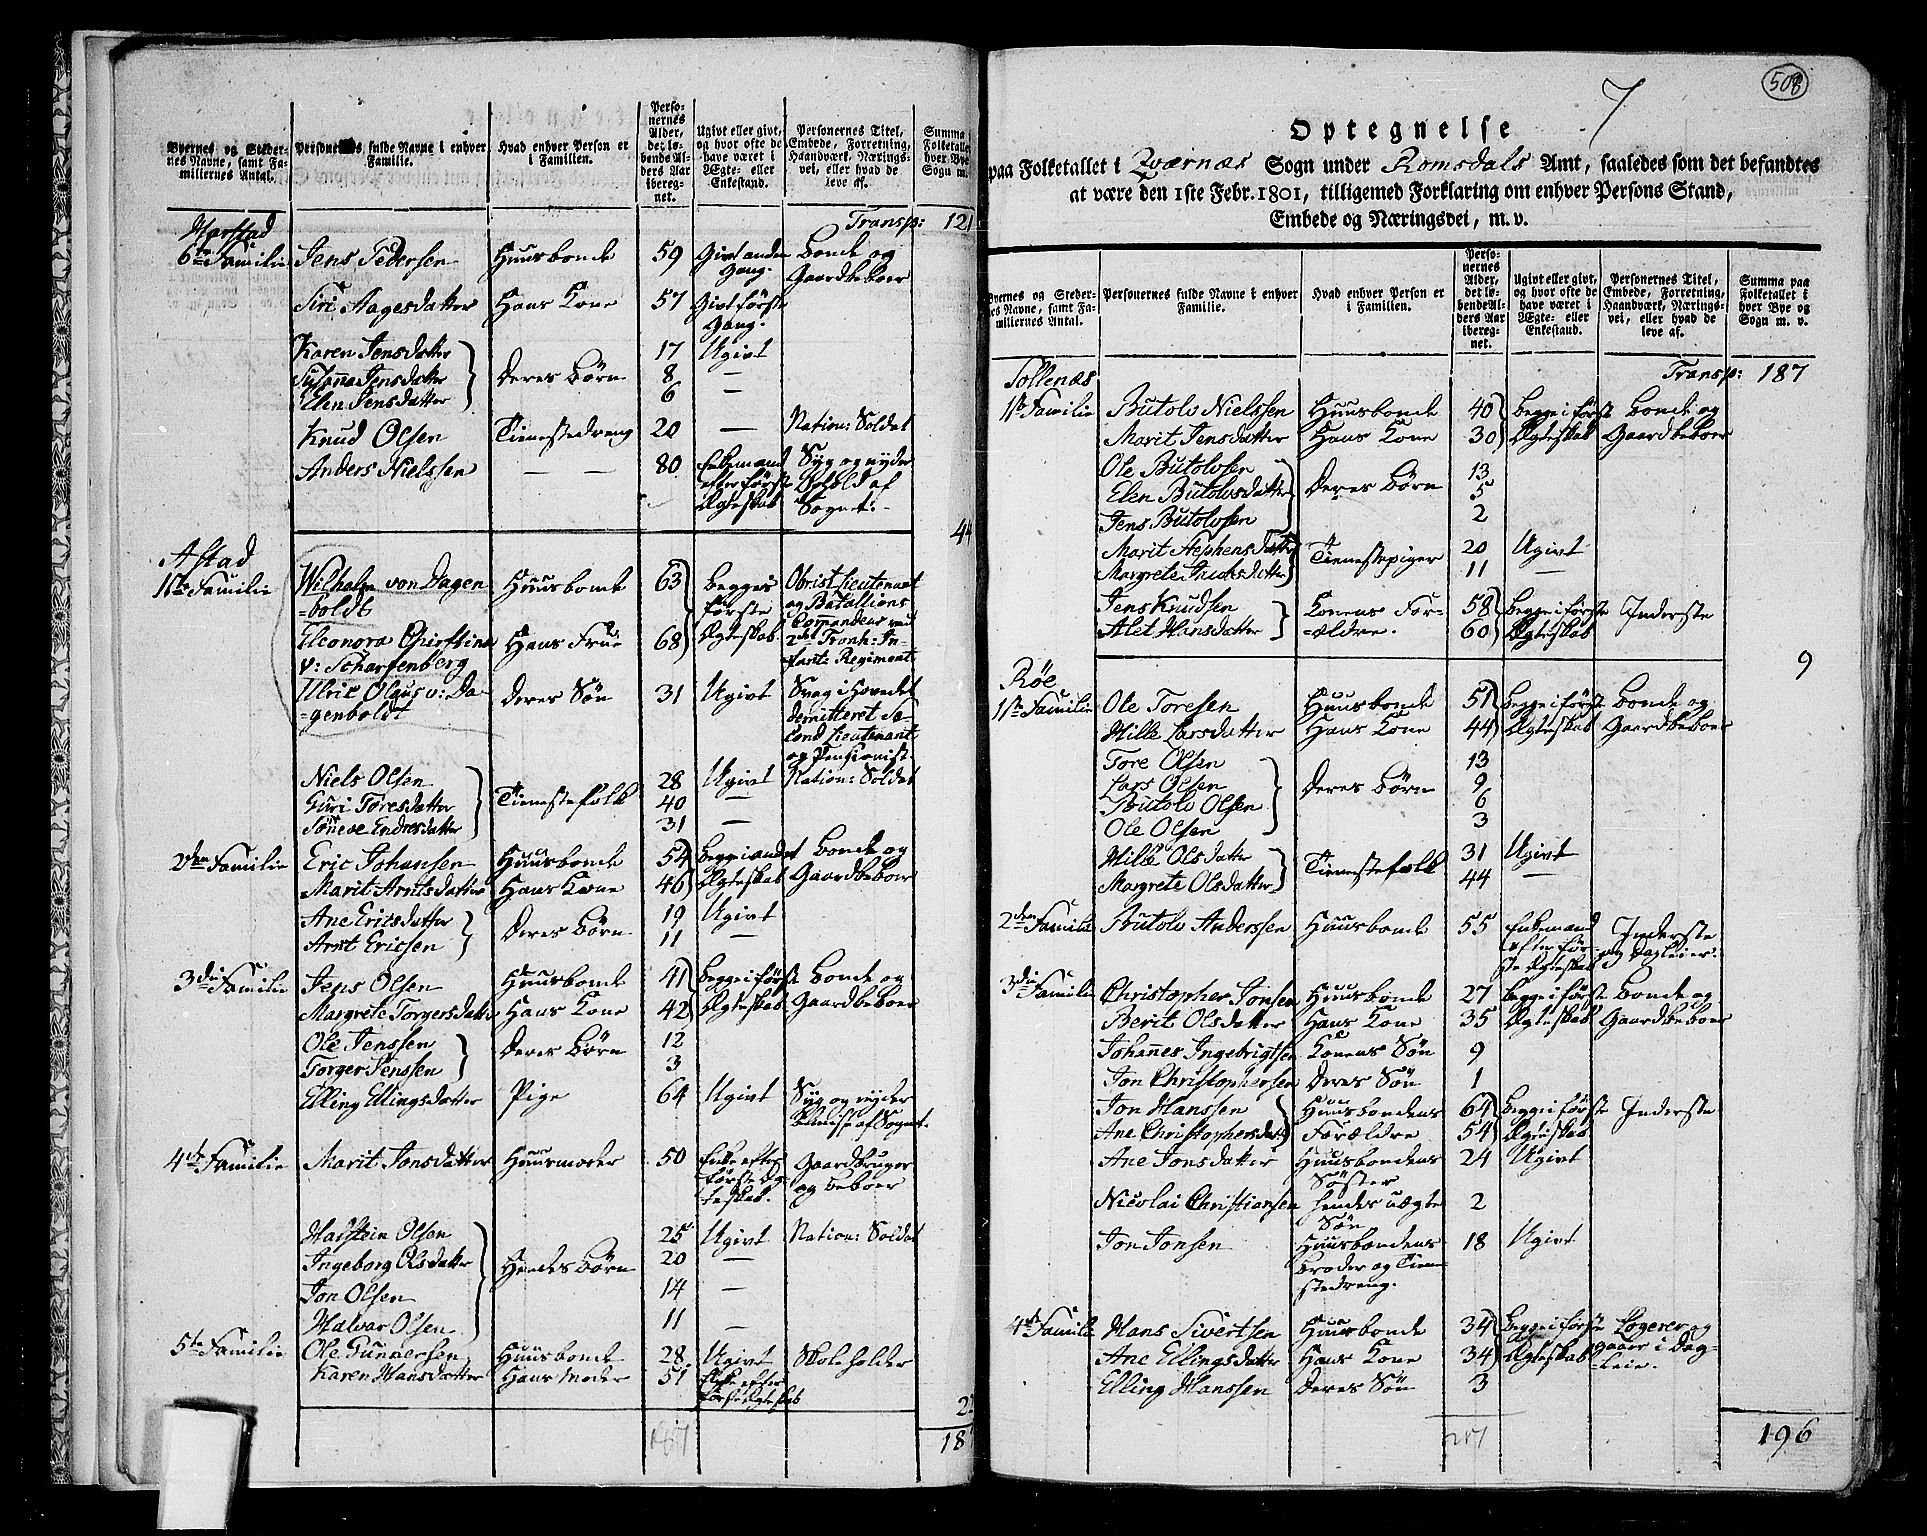 Byernes og Steder-
nes Navne, samt Fa-
miliernes Antal.
Personernes fulde Navne i enhver
Familie.
Hvad enhver Person er
i Familien.
Perso-
nernes
Alder,
det lø-
bende Al-
ders Aar
ibereg-
net.
Ugivt eller givt,
og hvor ofte de
have været i
Ægte- eller
Enkestand.
Personernes Titel,
Embede, Forretning,
Haandværk, Nærings-
vei, eller hvad de
leve af.
Summa
Folketallet
hver Bye
Sogn m.
Harstad Transp: 121
6te Familie Jens Pedersen Huusbonde 59 Givt anden Bonde og
Gang. Gaardbeboer
Siri Aagesdatter Hans Kone 57 Givt første
Gang.
Karen Jensdatter 17 Ugivt
Susanna Jensdatter Deres Børn 8 —
Elen Jensdatter 6 —
Knud Olsen Tienestedreng 20 — Nation: Soldat
Anders Nielssen — — 80 Enkemand Syg og nyder
efter første Ophold af
Ægteskab Sognet.
44
Astad
1ste Familie Wilhelm von Dagen Huusbonde 63 Begge i Obristlieutenant
=boldt første og Batallions
Eleonora Christina Hans Frue 68 Ægteskab Commandeur ved
v: Scharfenberg 2det Tronh: In-
fant: Regiment
Ulric Olaus v: Da- Deres Søn 31 Ugivt Svag i Hovedet
=genboldt demitteret Se-
cond Lieutenant
og Pensionist
Niels Olsen 28 Ugivt Nation: Soldat
Guri Toresdatter Tienestefolk 40 —
Synneve Endresdatter 31 —
2den Familie Eric Johansen Huusbonde 54 Begge i andet Bonde og
Marit Arntsdatter Hans Kone 46 Ægteskab Gaardbeboer
Ane Ericsdatter Deres Børn 19 Ugivt
Arnt Ericsen 11 —
3die Familie Jens Olsen Huusbonde 41 Begge i første Bonde og
Margrete Torgersdatter Hans Kone 42 Ægteskab Gaardbeboer
Ole Jenssen Deres Børn 12
Torger Jenssen 3
Elling Ellingsdatter Pige 64 Ugivt Syg og nyder
Almisse af Sognet.
4de Familie Marit Jonsdatter Huusmoder 50 Enke efter Gaardbruger
første Æg- og beboer
teskab.
Halstein Olsen 25 Ugivt Nation: Soldat
Ingeborg Olsdatter Hendes Børn 20 —
Jon Olsen 14 —
Halvar Olsen 11 —
5te Familie Ole Gunnersen Huusbonde 28 Ugivt Skoleholder
Karen Hansdatter Hans Moder 51 Enke efter
første Ægteskab
2
187 18
508
7
Optegnelse
paa Folketallet i Qværnæs Sogn under Romsdals Amt, saaledes som det befandtes
at være den 1ste Febr. 1801, tilligemed Forklaring om enhver Persons Stand,
Embede og Næringsvei, m. v.
Byernes og Steder-
nes Navne, samt Fa-
miliernes Antal.
Personernes fulde Navne i enhver
Familie.
Hvad enhver Person er
i Familien.
Perso-
nernes
Alder,
det lø-
bende Al-
ders Aar
ibereg-
net.
Ugivt eller givt,
og hvor ofte de
have været i
Ægte- eller
Enkestand.
Personernes Titel,
Embede, Forretning,
Haandværk, Nærings-
vei, eller hvad de
leve af.
Summa paa
Folketallet i
hver Bye og
Sogn m. v.
Sollenæs Transp: 187
1ste Familie Butolv Nielssen Huusbonde 40 Begge i første Bonde og
Marit Jensdatter Hans Kone 30 Ægteskab Gaardbeboer
Ole Butolvsen 13
Elen Butolvsdatter Deres Børn 5
Jens Butolvsen 2
Marit Stephensdatter Tienestepiger 20 Ugivt
Margrete Jacobsdatter 11 —
Jens Knudsen Konens For- 58 Begge i første Inderste
Alet Hansdatter =ældre. 60 Ægteskab
9
Røe
1ste Familie Ole Toresen Huusbonde 51 Begge i første Bonde og
Mille Larsdatter Hans Kone 44 Ægteskab Gaardbeboer
Tore Olsen 13
Lars Olsen Deres Børn 9
Butolv Olsen 6
Ole Olsen 3
Mille Olsdatter Tienestefolk 31 Ugivt
Margrete Olsdatter 44 —
2den Familie Butolv Anderssen Huusbonde 55 Enkemand Inderste
efter før- og Dagleier.
ste Ægteskab
3die Familie Christopher Jonsen Huusbonde 27 Begge i første Bonde og
Berit Olsdatter Hans Kone 35 Ægteskab Gaardbeboer
Johannes Ingebrigtsen Konens Søn 9
Jon Christophersen Deres Søn 1
Jon Hanssen Huusbondens 64 Begge i første Inderste
Ane Christophersdatter Forældre 54 Ægteskab
Ane Jonsdatter Huusbondens 24 Ugivt
Søster
Nicolai Christiansen Hendes uægte 2
Søn
Jon Jonsen Huusbondens 18 Ugivt
Broder og Tiene-
stedreng.
4de Familie Hans Sivertsen Huusbonde 34 Begge i første Logerer og
Ane Ellingsdatter Hans Kone 34 Ægteskab gaaer i Dag-
Elling Hanssen Deres Søn 3 leie.
196